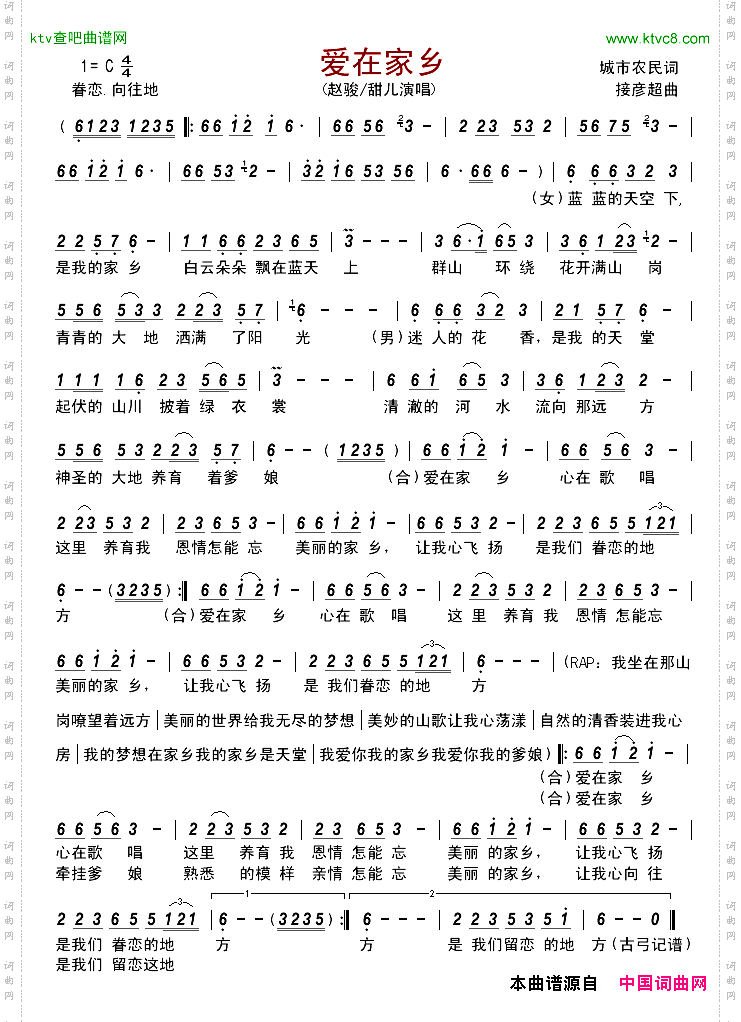 ktv查吧曲谱网 www.ktvc8.com
爱在家乡
1=C 4/4 城市农民词
眷恋.向往地 (赵骏/甜儿演唱) 接彦超曲
(6123 1235 :66 i2 i 6· 66 53 2 - 66 56 3 - 2 23 53 2 56 75 3 -
66 i2 i 6· 66 53 2 - 32 i6 53 56 6·66 6 - ) 6 66 32 3
(女)蓝 蓝的天空 下,
2 2 5 7 6 - 1 1 6 6 2 3 6 5 3 - 3 6·i 65 3 3 6 i 23 2 -
是我的家 乡 白云朵朵 飘在蓝天 上 群山 环 绕 花开满山 岗
5 5 6 5 3 3 2 23 5 7 6 - 6 6 6 3 2 3 2 1 5 7 6 -
青青的 大 地 洒满 了阳 光 (男)迷 人的 花 香,是我 的天 堂
1 1 1 1 6 2 3 5 6 5 3 - 6 6 i 6 5 3 3 6 i 2 3 2 -
起伏的 山川 披着 绿 衣 裳 清 澈的 河 水 流向 那远 方
5 5 6 5 3 2 2 2 3 5 7 6 - - (1235) 6 6 i 2 i - 6 6 5 6 3 -
神圣的 大地 养育 着爹 娘 (合)爱在家 乡 心在 歌 唱
2 23 5 3 2 2 3 6 5 3 - 6 6 i 2 i - 6 6 5 3 2 - 2 2 3 6 5 5 121
这里 养育我 恩情怎能 忘 美丽的家 乡, 让我心飞 扬 是我们 眷恋的地
6 - - (3235): 6 6 i 2 i - 6 6 5 6 3 - 2 2 3 5 3 2 2 3 6 5 3 -
方 (合)爱在家 乡 心在 歌 唱 这 里 养育 我 恩情 怎能忘
6 6 i 2 i - 6 6 5 3 2 - 2 2 3 6 5 5 121 6 - - - (RAP: 我坐在那山
美丽的家 乡, 让我心飞 扬 是 我们眷恋 的地 方
岗嘹望着远方|美丽的世界给我无尽的梦想|美妙的山歌让我心荡漾|自然的清香装进我心
房|我的梦想在家乡我的家乡是天堂|我爱你我的家乡我爱你我的爹娘) : 6 6 i 2 i -
(合)爱在家 乡
(合)爱在家 乡
6 6 5 6 3 - 2 2 3 5 3 2 2 3 6 5 3 - 6 6 i 2 i - 6 6 5 3 2 -
心在歌 唱 这里 养育 我 恩情 怎能 忘 美丽 的家乡, 让我心飞 扬
牵挂爹 娘 熟悉 的模 样 亲情 怎能 忘 美丽 的家乡, 让我心向 往
1 2
2 2 3 6 5 5 121 6 - - (3235): 6 - - - 2 2 3 5 3 5 i 6 - - 0
是我们 眷恋的地 方 方 是 我们留恋 的地 方(古弓记谱)
是我们 留恋这地
本曲谱源自 中国词曲网